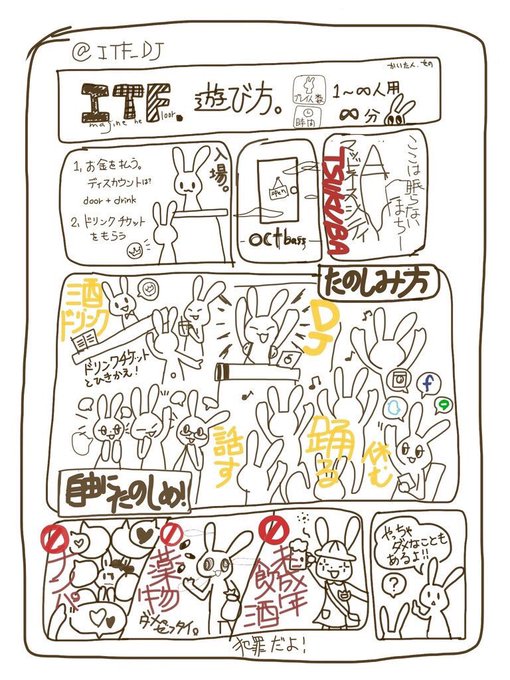 @ITF_DJ
かいたん.もの
ITF.
magine he loor.
遊び方。
プレイ人数
1〜∞人用
時間
∞分
1, お金を払う。
ディスカウントは?
door + drink
2, ドリンクチケット
をもらう
入場。
open
octbass
ここは眠らない
まち
TSUKUBA
たのしみ方
酒
ドリンク
ドリンクチケット
とひきかえ!
DJ
f
話す
踊る
休む
自由にたのしめ!
ナンパ
薬物
ダメゼッタイ。
未成年
飲酒
犯罪だよ!
やっちゃ
ダメなことも
あるよ!!
?